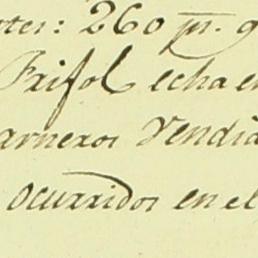 otes: 260 pr. q
Frifol echa en
arneros Vendia
ocurridos en el